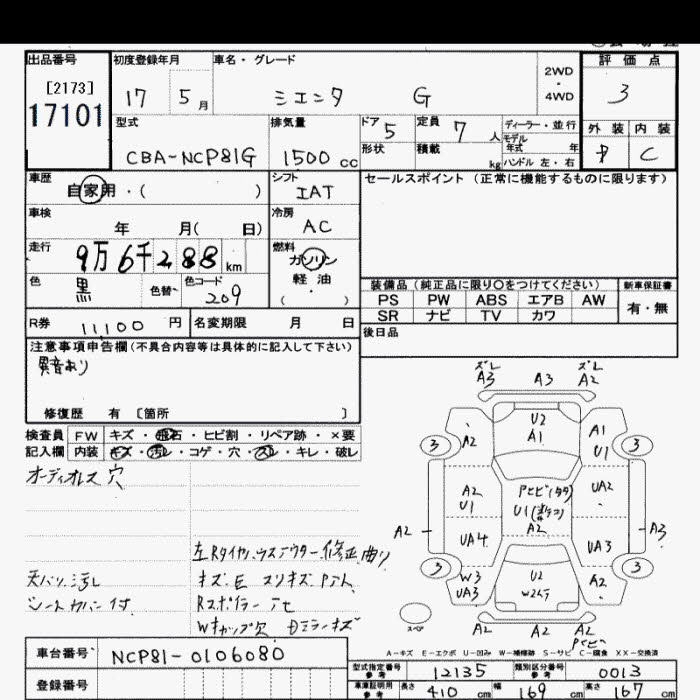 出品番号 初度登録年月 車名・グレード 評価点
[2173]
17101
17 5月 シエンタ G 2WD・4WD 3
型式 排気量 ドア 5 定員 7人 ディーラー・並行 外装 内装
形状 積載 kg モデル年式 年 ハンドル 左・右
CBA-NCP81G 1500cc C
車歴 自家用・( ) シフト IAT セールスポイント (正常に機能するものに限ります)
車検 年 月( 日) 冷房 AC
走行 9万6千288km 燃料 ガソリン
軽油
( )
色 黒 色替 色コード 209
装備品 (純正品に限り〇をつけてください) 新車保証書
PS PW ABS エアB AW 有・無
SR ナビ TV カワ
R券 11,100円 名変期限 月 日 後日品
注意事項申告欄(不具合内容等は具体的に記入して下さい)
異音あり
修復歴 有 〔箇所 〕
検査員 FW キズ・飛石・ヒビ割・リペア跡・×要
記入欄 内装 キズ・汚レ・コゲ・穴・スレ・キレ・破レ
オーディオレス 穴
天バリ汚レ
シートカバー付
Rスポイラー
Wキャップ欠
ズレ ズレ
A3 A3 A2
3 A2 U2 A1 A1 U1 3
A2 U1 UA2
U1
A2 UA4 A2 UA3 A3
3 W3 UA3 U2 A2 3
スペ A2 A2 A2
A-キズ E-エクボ U-凹み W-補修跡 S-サビ C-腐食 XX-交換済
車台番号 NCP81-0106080
登録番号
型式指定番号 参考 12135 類別区分番号 参考 0013
車庫証明用 参考 長さ 410cm 幅 169cm 高さ 167cm